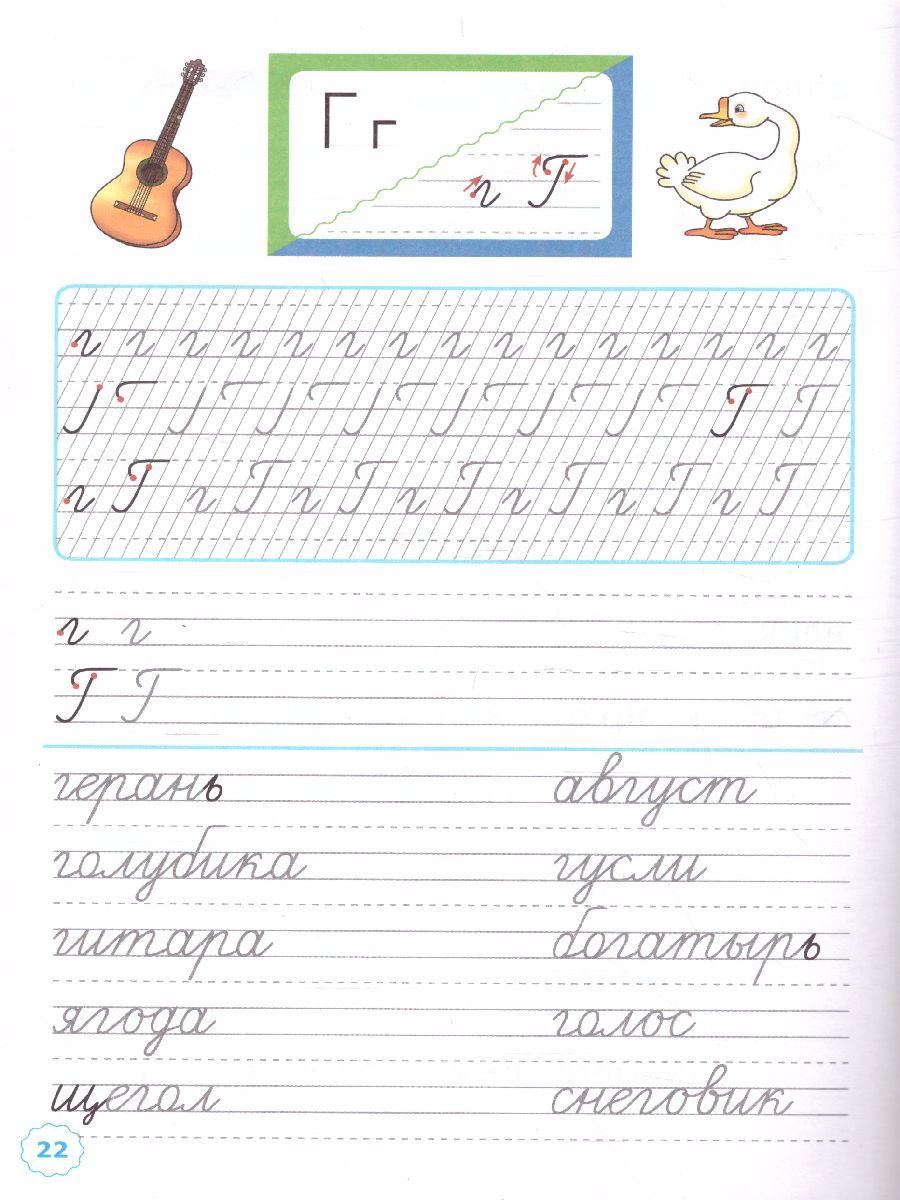 Г г
г Г
г г г г г г г г г г г г г г г
Г Г
г Г г Г г Г г Г г Г г Г г Г
г г
Г Г
герань август
голубика гусли
гитара богатырь
ягода голос
щегол снеговик
22